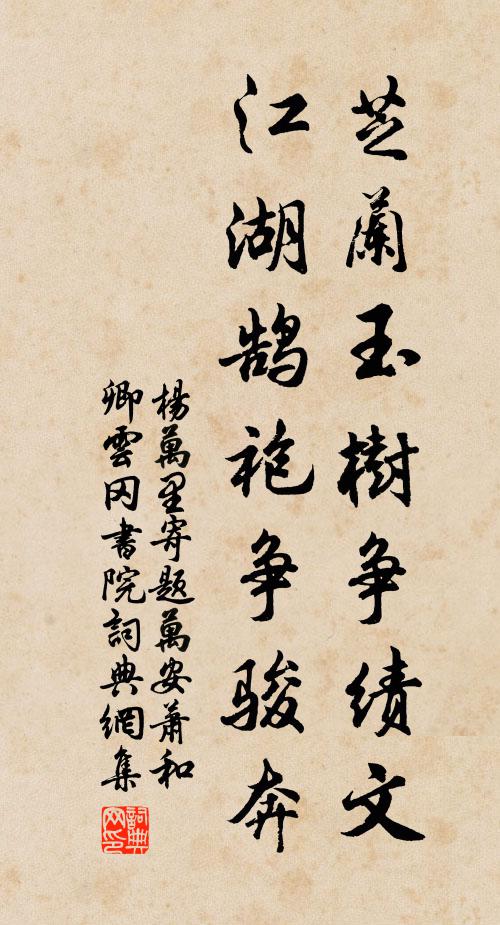 芝蘭玉樹争绩文
江湖鹄袍争骏奔
楊萬里寄题萬安蕭和
卿雲冈書院詞典網集
詞典网印